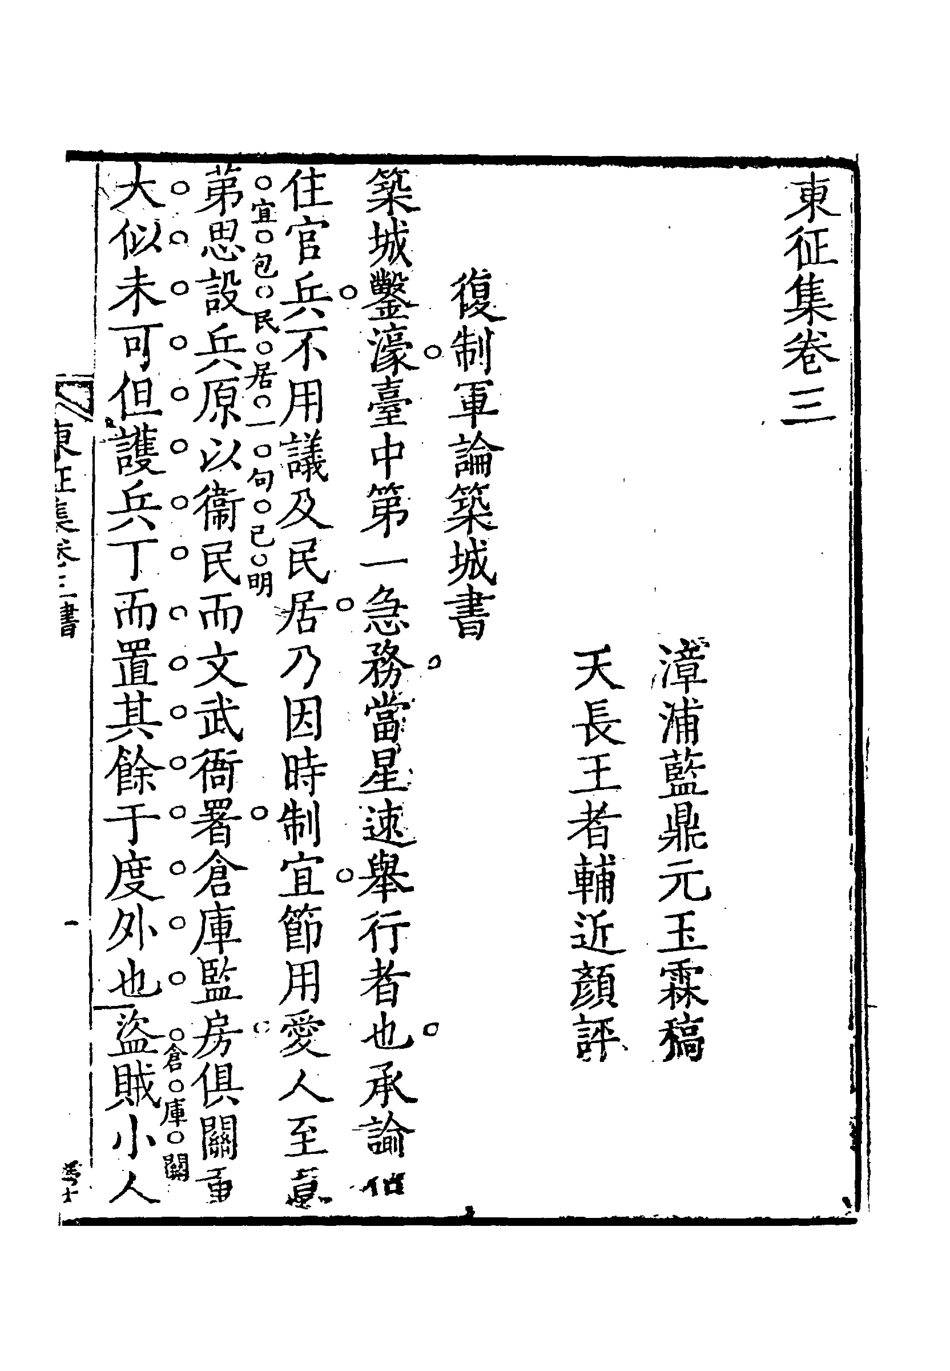 東征集卷三
漳浦藍鼎元玉霖稿
天長王者輔近顏評
復制軍論築城書
築城鑿濠臺中第一急務當星速舉行者也承諭
住官兵不用議及民居乃因時制宜節用愛人至意
宜包民居一句已明
第思設兵原以衞民而文武衙署倉庫監房俱關重
倉庫關
大似未可但護兵丁而置其餘于度外也盜賊小人
東征集卷三書
一